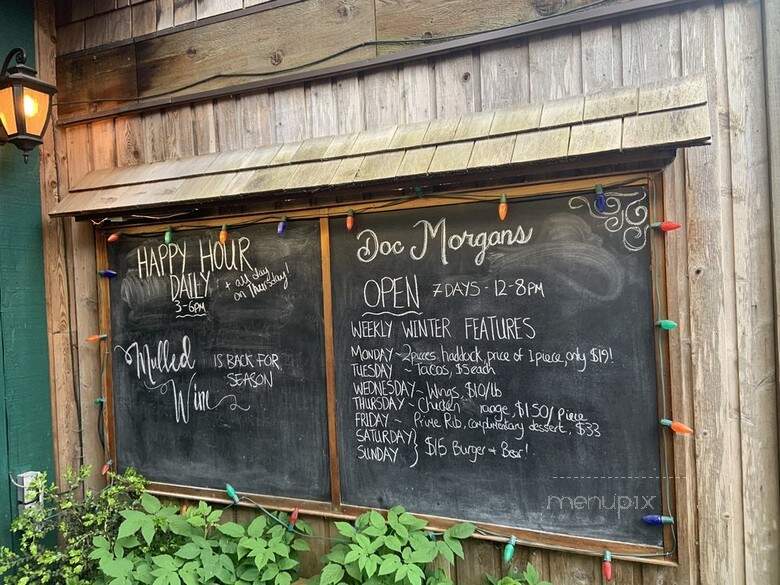 HAPPY HOUR
DAILY + all day
on Thursday!
3-6PM
Mulled IS BACK FOR
SEASON
Wine
Doc Morgans
OPEN 7 DAYS - 12-8PM
WEEKLY WINTER FEATURES
MONDAY ~ 2 pieces, haddock, price of 1 piece, only $19!
TUESDAY ~ Tacos, $5 each
WEDNESDAY ~ Wings, $10/lb
THURSDAY ~ Chicken range, $1.50/piece
FRIDAY ~ Prime Rib, complimentary dessert, $33
SATURDAY }
SUNDAY } $15 Burger + Beer!
menupix